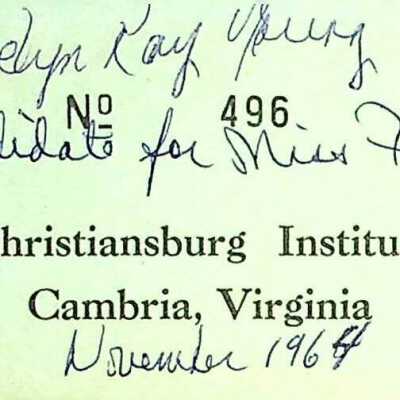 elyn Kay Young
No 496
didate for Miss F
hristiansburg Institu
Cambria, Virginia
November 1964